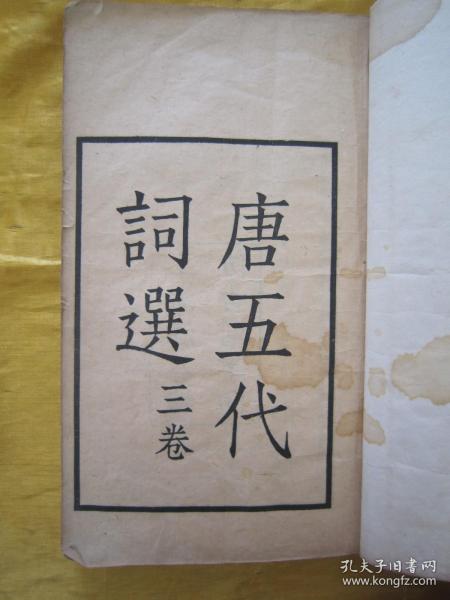 唐五代
詞選三卷
孔夫子旧书网
www.kongfz.com